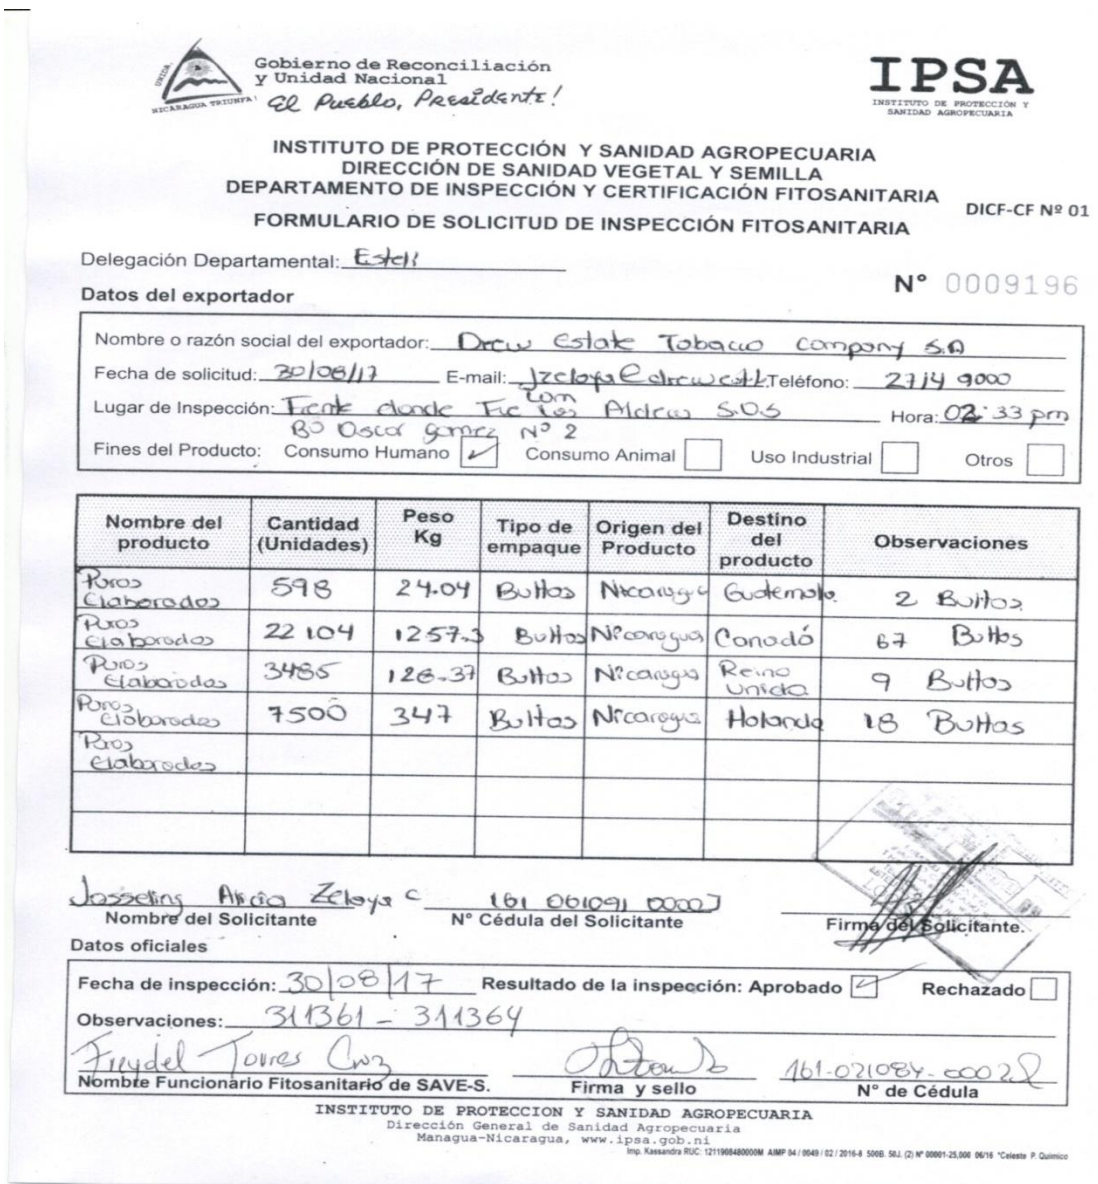 UNIDA,
NICARAGUA TRIUNFA!
Gobierno de Reconciliación
y Unidad Nacional
El Pueblo, Presidente!
IPSA
INSTITUTO DE PROTECCIÓN Y
SANIDAD AGROPECUARIA
INSTITUTO DE PROTECCIÓN Y SANIDAD AGROPECUARIA
DIRECCIÓN DE SANIDAD VEGETAL Y SEMILLA
DEPARTAMENTO DE INSPECCIÓN Y CERTIFICACIÓN FITOSANITARIA
DICF-CF Nº 01
FORMULARIO DE SOLICITUD DE INSPECCIÓN FITOSANITARIA
Delegación Departamental: Estelí
N° 0009196
Datos del exportador
Nombre o razón social del exportador: Drew Estate Tobacco Company S.A
Fecha de solicitud: 30/08/17 E-mail: Teléfono: 2714 9000
com
Lugar de Inspección: Frente donde Fue los Aldeas S.O.S Hora: 02:33 pm
Bo Oscar Gamez Nº 2
Fines del Producto: Consumo Humano Consumo Animal Uso Industrial Otros
Nombre del producto Cantidad (Unidades) Peso Kg Tipo de empaque Origen del Producto Destino del producto Observaciones
Puros Elaborados 598 24.04 Bultos Nicaragua Guatemala 2 Bultos
Puros Elaborados 22104 1257.3 Bultos Nicaragua Canadá 67 Bultos
Puros Elaborados 3485 128.37 Bultos Nicaragua Reino Unido 9 Bultos
Puros Elaborados 7500 347 Bultos Nicaragua Holanda 18 Bultos
Puros Elaborados
Josseling Alicia Zelaya C 161 061091 0000J
Nombre del Solicitante N° Cédula del Solicitante Firma del Solicitante.
Datos oficiales
Fecha de inspección: 30/08/17 Resultado de la inspección: Aprobado Rechazado
Observaciones: 311361 - 311364
Freydel Torres Cruz 161-021084-0002
Nombre Funcionario Fitosanitario de SAVE-S. Firma y sello N° de Cédula
INSTITUTO DE PROTECCION Y SANIDAD AGROPECUARIA
Dirección General de Sanidad Agropecuaria
Managua-Nicaragua, www.ipsa.gob.ni
Imp. Kassandra RUC: 1211908480000M AIMP 04 / 0049 / 02 / 2016-8 500B. 50J. (2) Nº 00001-25,000 06/16 *Celeste P. Quimico